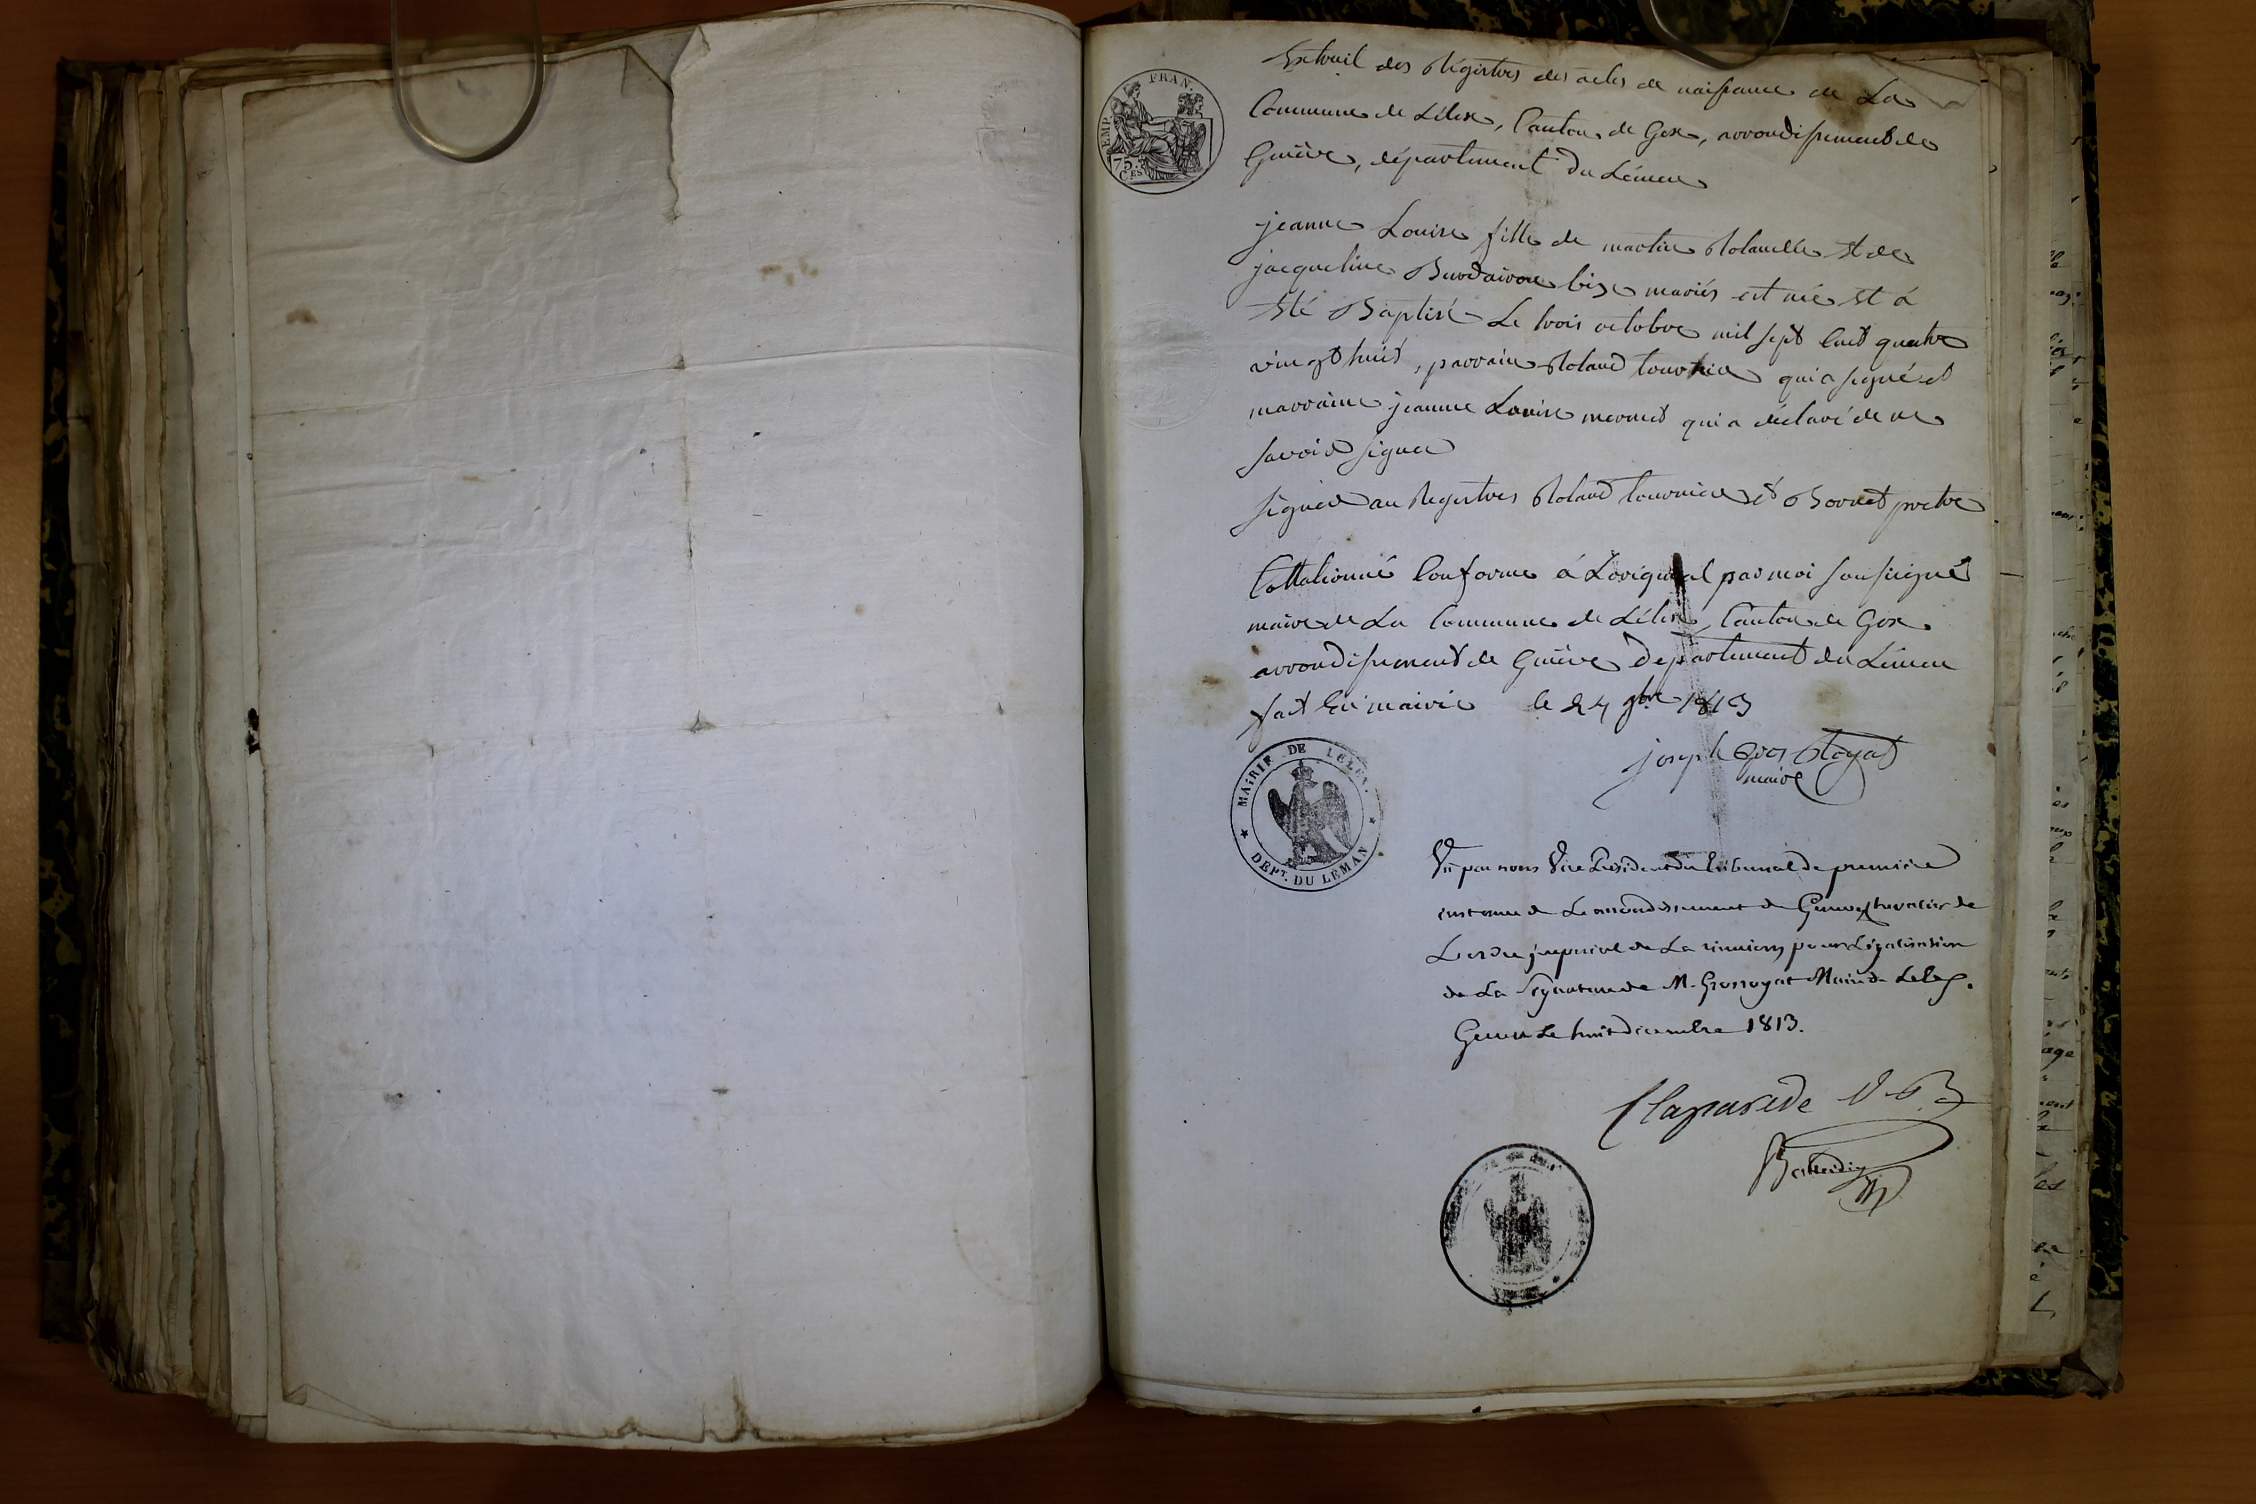 EMP. FRAN.
75 CES
Extrait des Régistres des actes de naissance de La
Commune de Lélex, Canton de Gex, arrondissement de
Genève, département du Léman
jeanne Louise fille de martin Rolandle et de
jacqueline mariés est née et à
été Baptisé Le trois octobre mil sept Cent quatre
vingt huit, parrain Roland tournier qui a signé et
marraine jeanne Louise mermet qui a déclaré de ne
savoir signer
signée au Registres Roland tournier et Bornet pretre
Collationné Conforme á L'original par moi soussigné
maire de La Commune de Lélex, Canton de Gex
arrondissement de Genève Departement du Léman
fait En mairie le 24 9bre 1813
joseph Gros Royat
maire
MAIRIE DE LELEX.
DEPT. DU LEMAN
Vû par nous Vice Président du tribunal de premiere
instance de Larrondissement de Geneve Chevalier de
Lordre jmperial de La réunion pour Légalisation
de La Signature de M. Grosroyat Maire de Lelex.
Geneve Le huit decembre 1813.
Claparede V. P.